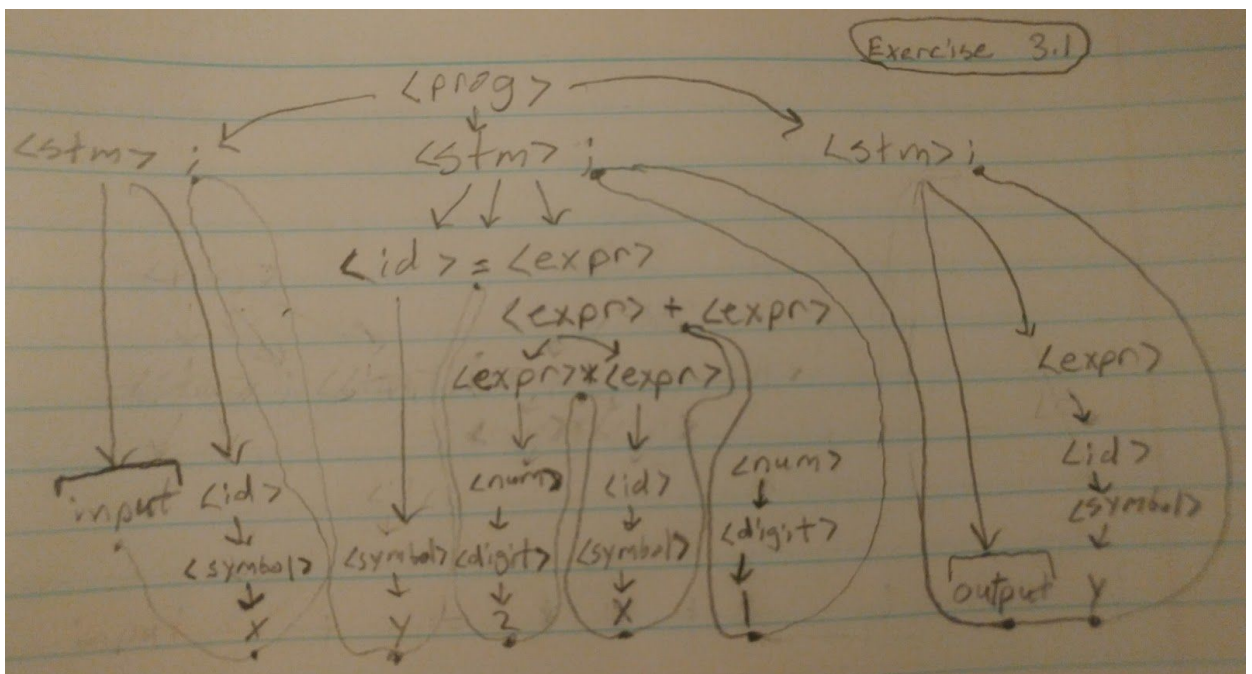 Exercise 3.1
<prog>
<stm> ; <stm> ; <stm> ;
<id> = <expr>
<expr> + <expr>
<expr> * <expr> <expr>
<num> <id> <num> <id>
input <id> <symbol>
<symbol> <symbol> <digit> <symbol> <digit>
output Y
X Y 2 X 1